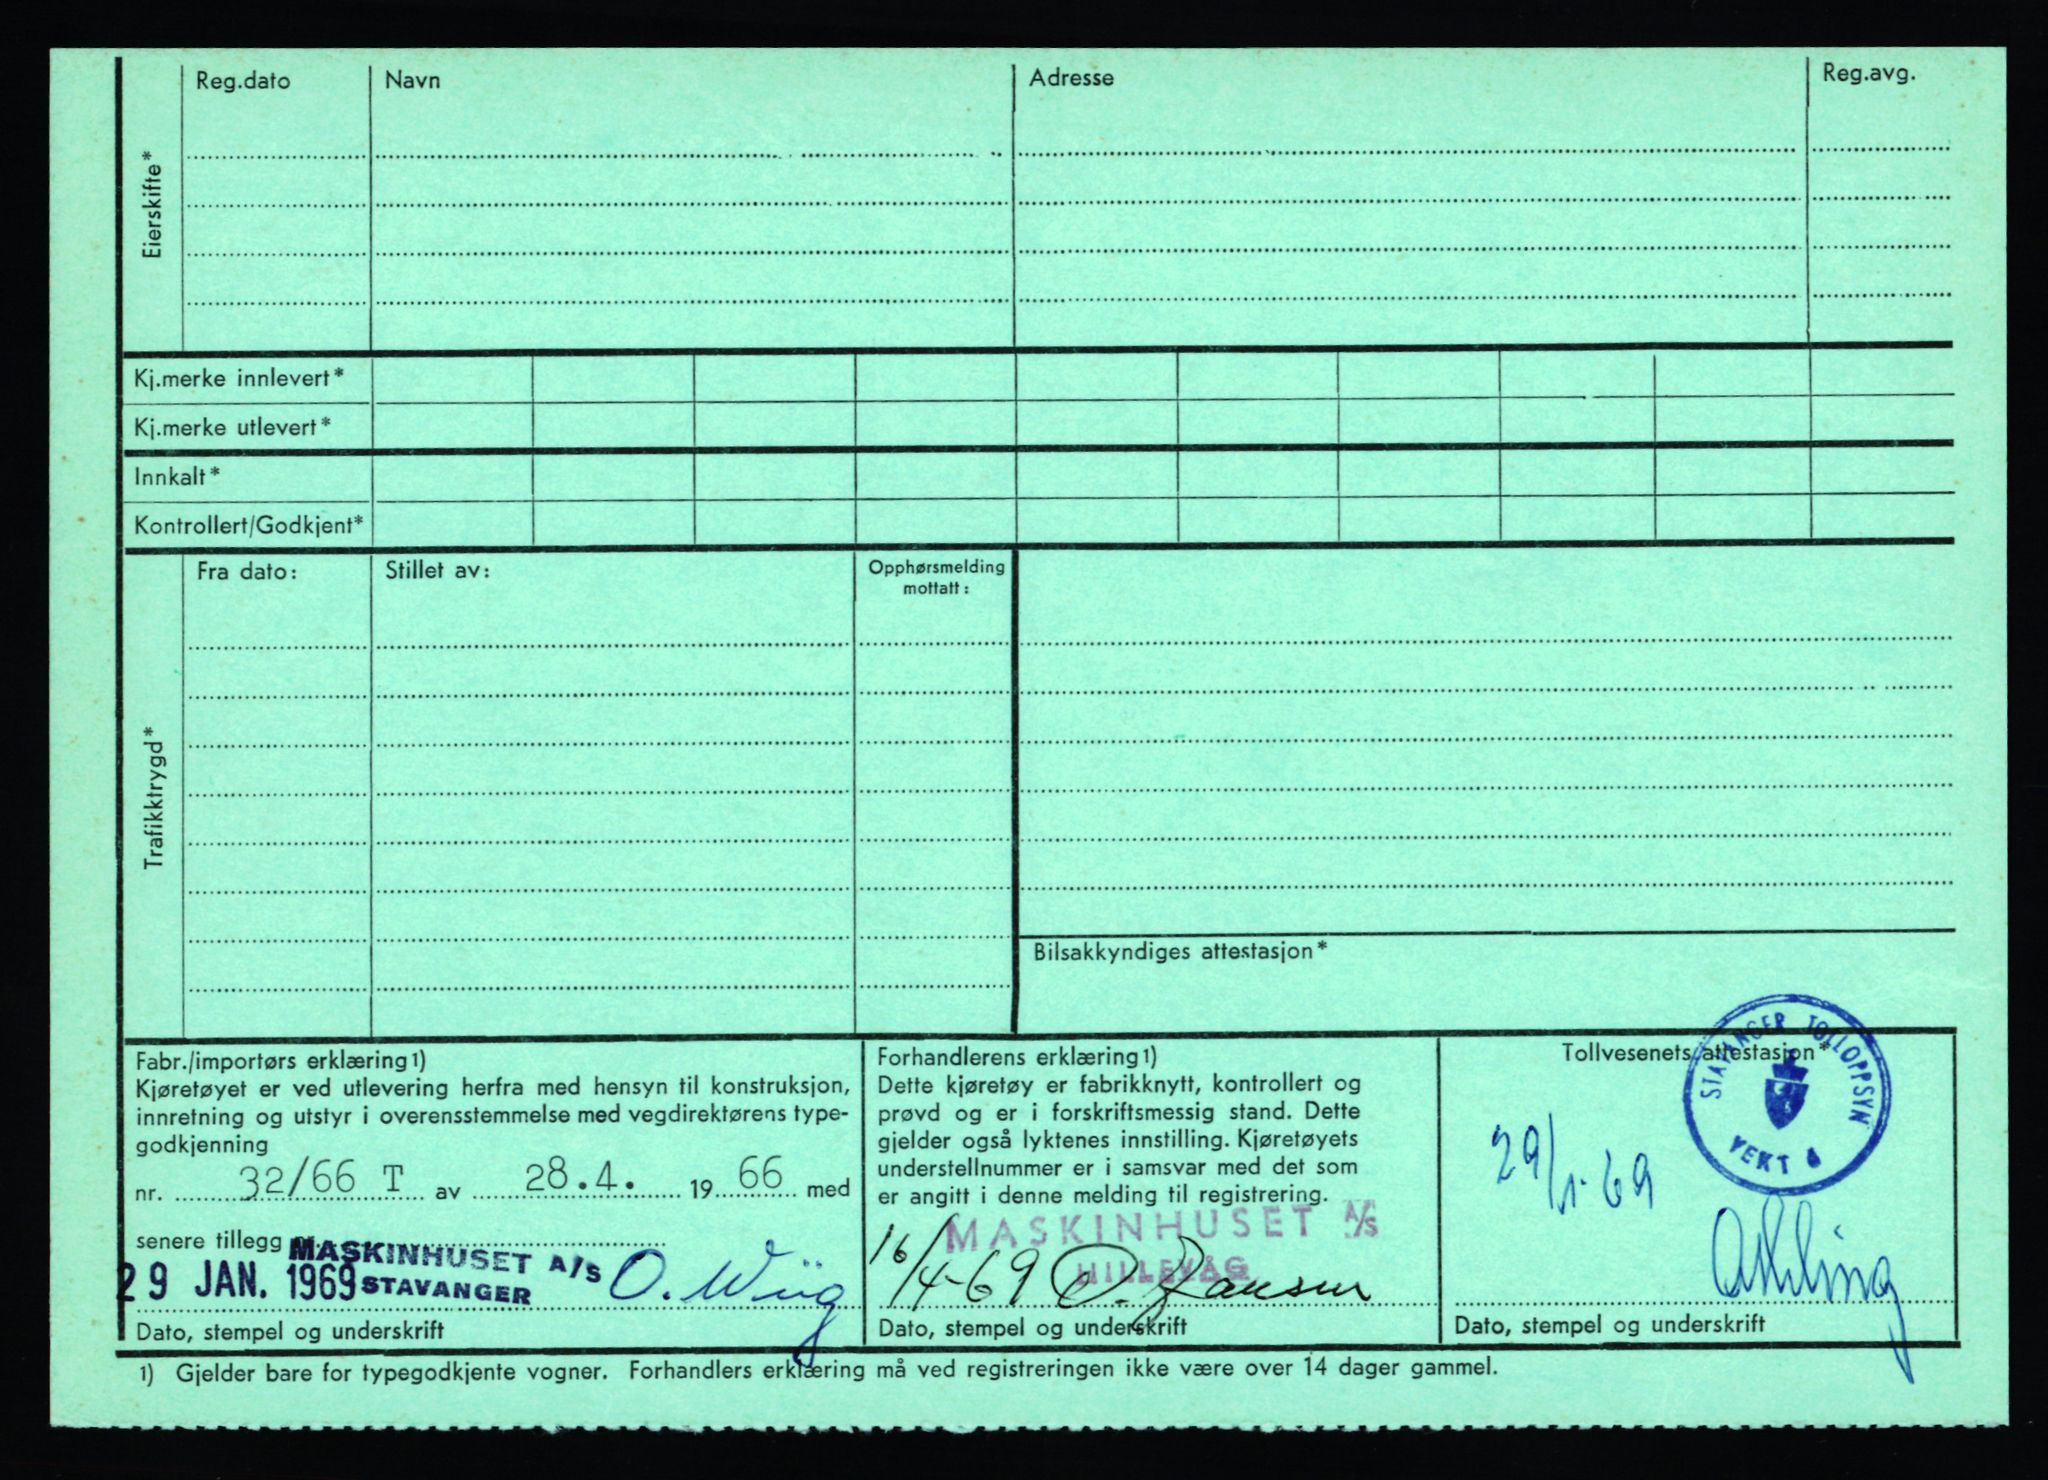 Reg.dato Navn Adresse Reg.avg.
Eierskifte*
Kj.merke innlevert*
Kj.merke utlevert*
Innkalt*
Kontrollert/Godkjent*
Trafikktrygd*
Fra dato: Stillet av: Opphørsmelding
mottatt:
Bilsakkyndiges attestasjon*
Fabr./importørs erklæring 1)
Kjøretøyet er ved utlevering herfra med hensyn til konstruksjon,
innretning og utstyr i overensstemmelse med vegdirektørens type-
godkjenning
nr. 32/66 T av 28.4. 1966 med
senere tillegg
MASKINHUSET A/S
STAVANGER
29 JAN. 1969
O. Wiig
Dato, stempel og underskrift
Forhandlerens erklæring 1)
Dette kjøretøy er fabrikknytt, kontrollert og
prøvd og er i forskriftsmessig stand. Dette
gjelder også lyktenes innstilling. Kjøretøyets
understellnummer er i samsvar med det som
er angitt i denne melding til registrering.
MASKINHUSET A/S
HILLEVÅG
16/4-69
Dato, stempel og underskrift
Tollvesenets attestasjon*
STAVANGER TOLLOPPSYN
VEKT 6
29/1-69
Dato, stempel og underskrift
1) Gjelder bare for typegodkjente vogner. Forhandlers erklæring må ved registreringen ikke være over 14 dager gammel.